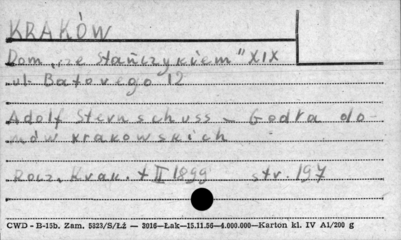 KRAKÓW
Dom „ze Stańczykiem" XIX
ul. Batorego 12
Adolf Sternschuss – Godła do-
mów krakowskich
Rocz. Krak. t II 1899 str. 197
CWD - B-15b. Zam. 5323/S/Łż — 3016—Łak—15.11.56—4.000.000—Karton kl. IV A1/200 g